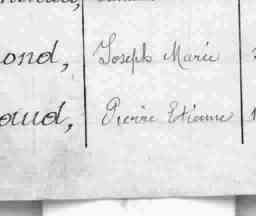 ond, Joseph Marie
aud, Pierre Etienne